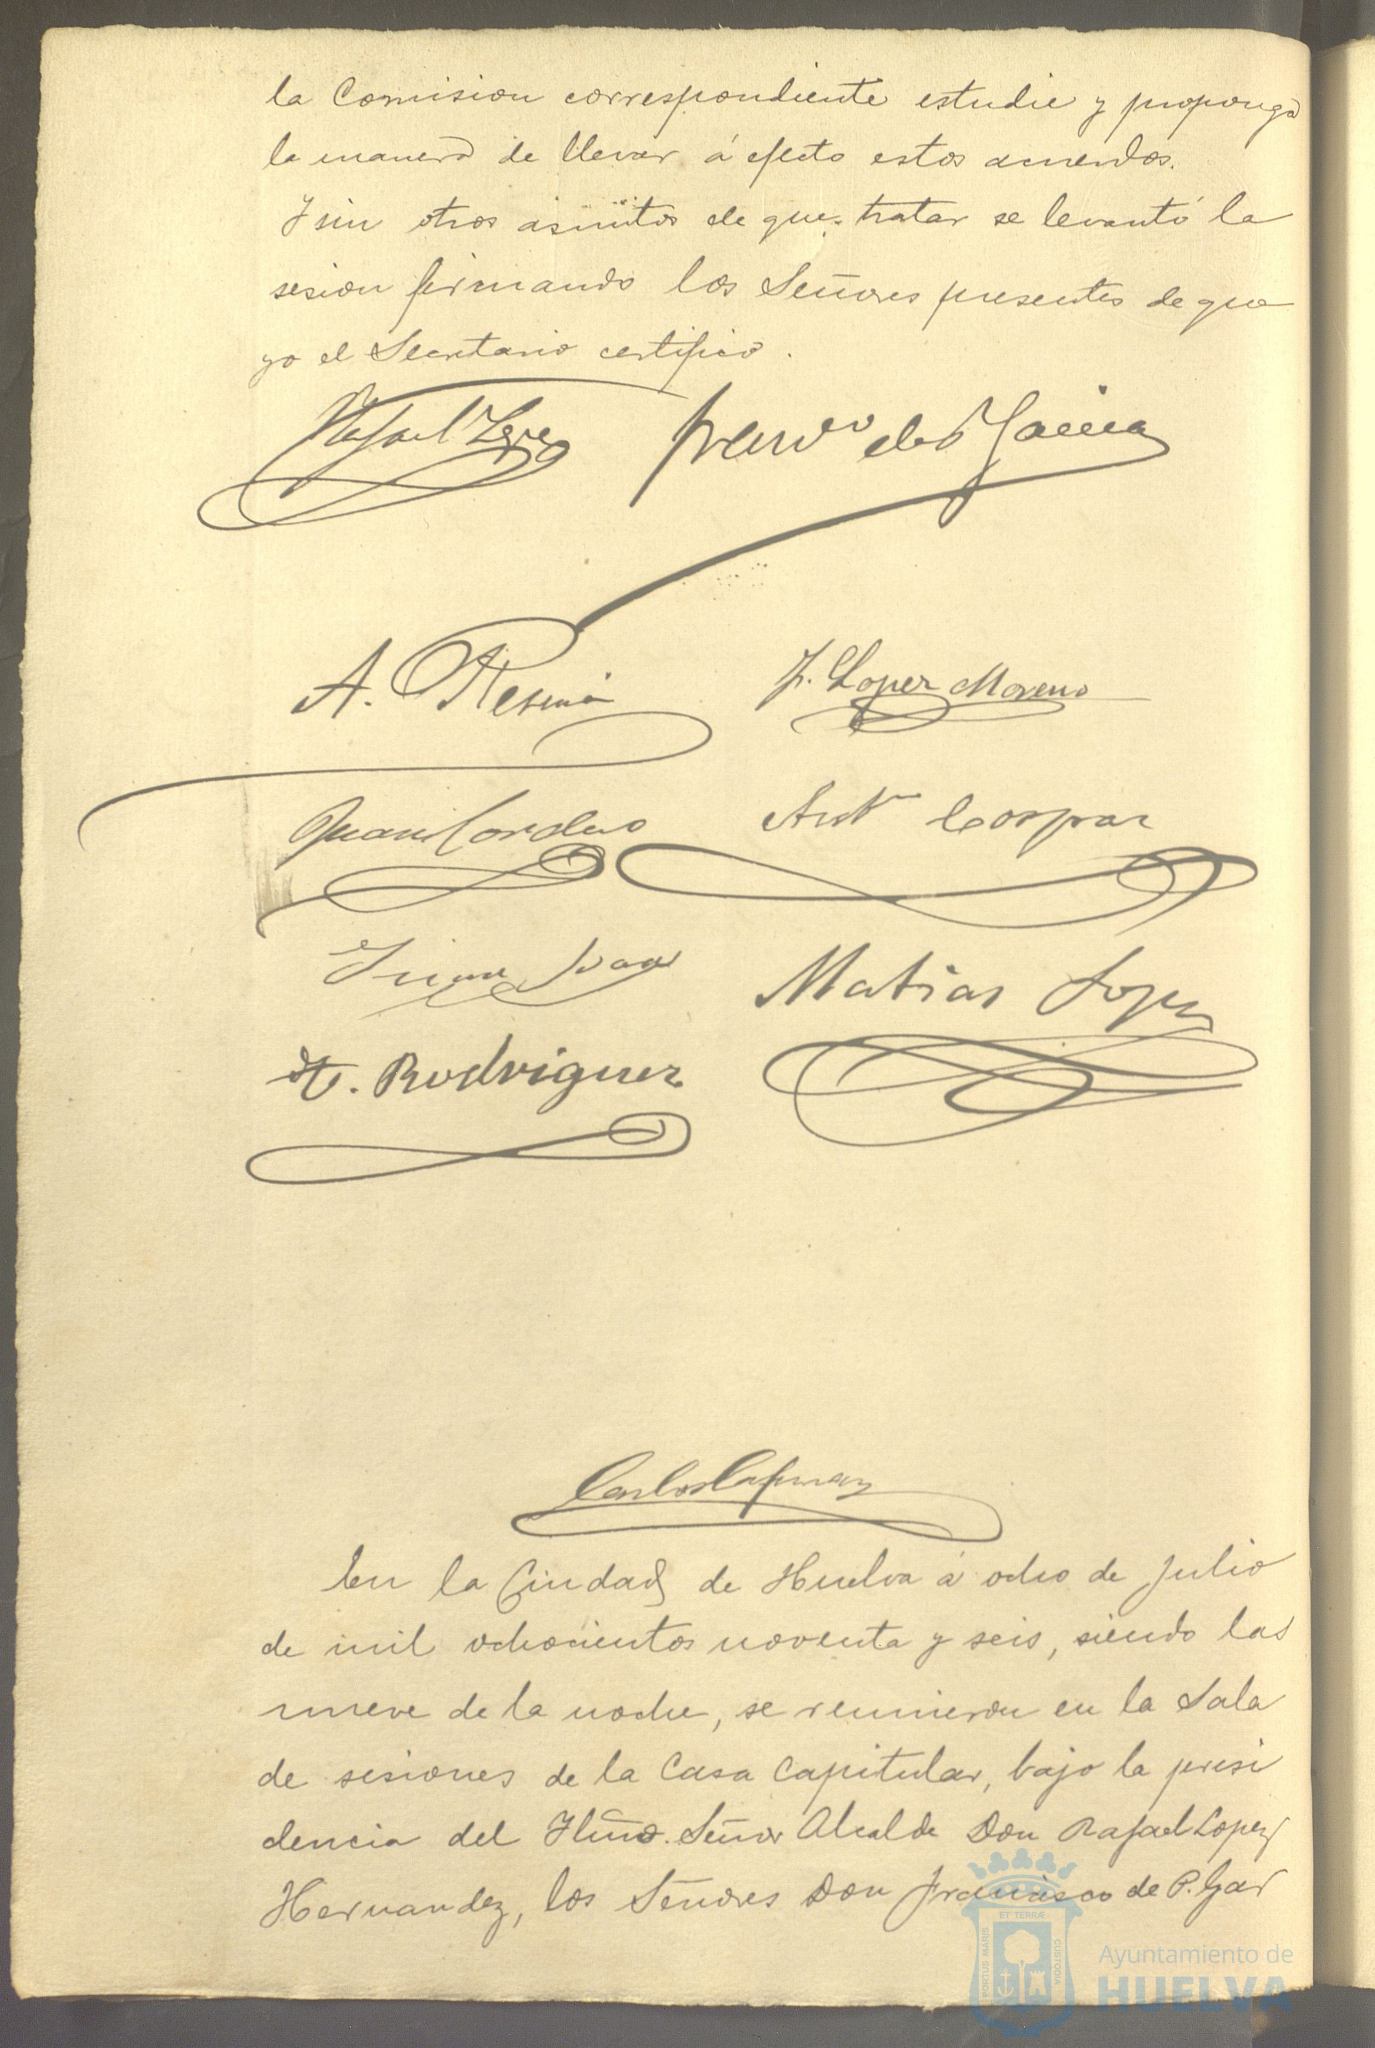 la Comision correspondiente estudie y proponga
la manera de llevar á efecto estos acuerdos.
Y sin otros asuntos de que tratar se levantó la
sesion firmando los Señores presentes de que
yo el Secretario certifico.
Rafael Lopez Franco de P García
A. F. Lopez Moreno
Juan Cordero Anto Gaspar
Matias Lopez
Rodriguez
Carlos
En la Ciudad de Huelva á ocho de Julio
de mil ochocientos noventa y seis, siendo las
nueve de la noche, se reunieron en la Sala
de sesiones de la Casa Capitular, bajo la presi
dencia del Iltmo. Señor Alcalde Don Rafael Lopez
Hernandez, los Señores Don Francisco de P. Gar
ET TERRÆ
PORTUS MARIS
CUSTODIA
Ayuntamiento de
HUELVA